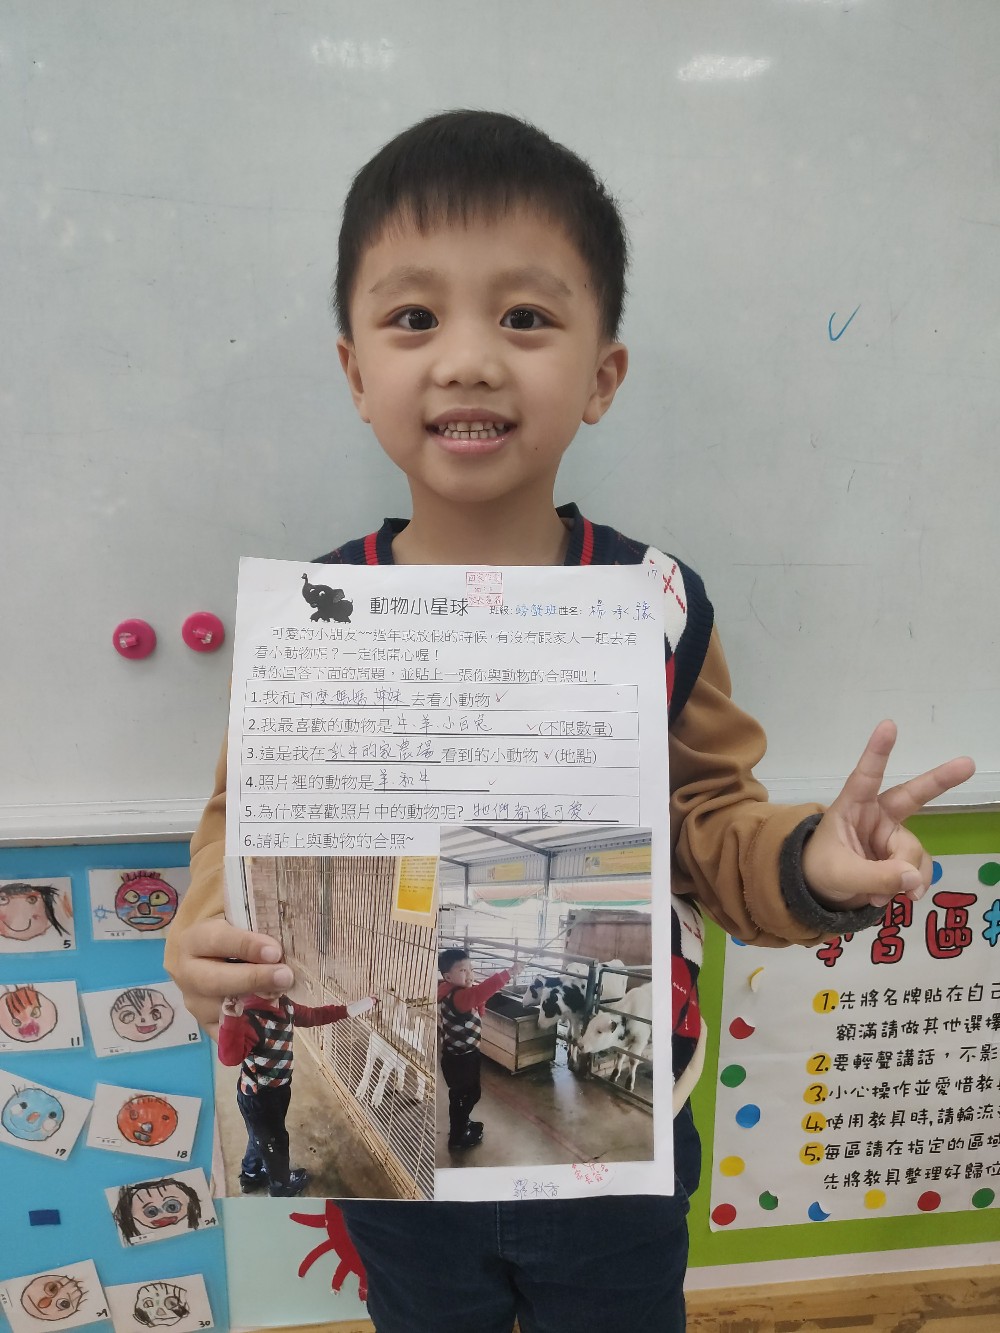 動物小星球 班級:螃蟹班姓名:楊承豫
17
可愛的小朋友~~過年或放假的時候,有沒有跟家人一起去看
看小動物呢?一定很開心喔!
請你回答下面的問題,並貼上一張你與動物的合照吧!
1.我和阿嬤媽媽姊妹去看小動物
2.我最喜歡的動物是牛、羊、小白兔(不限數量)
3.這是我在乳牛的家農場看到的小動物(地點)
4.照片裡的動物是羊和牛
5.為什麼喜歡照片中的動物呢?牠們都很可愛
6.請貼上與動物的合照~
5
11
12
17
18
24
29
30
學習區
1.先將名牌貼在自己
額滿請做其他選擇
2.要輕聲講話,不影
3.小心操作並愛惜教具
4.使用教具時,請輪流
5.每區請在指定的區域
先將教具整理好歸位